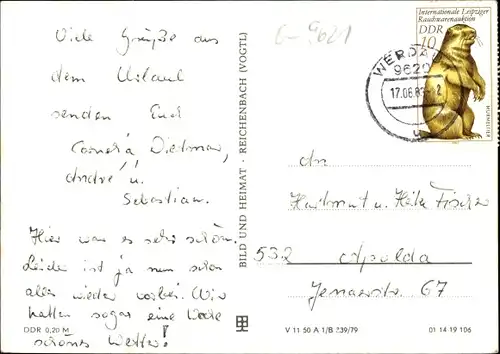 Viele Grüße aus
dem Urlaub
senden Euch
Cornelia, Dietmar,
André u.
Sebastian.
Hier war es sehr schön.
Leider ist ja nun schon
alles wieder vorbei. Wir
hatten sogar eine Woche
schönes Wetter!
DDR 0,20 M
BILD UND HEIMAT · REICHENBACH (VOGTL)
G-9621
Internationale Leipziger
Rauchwarenauktion
DDR
10
WERDAU
9620
17.06.83
An
Hartmut u. Heike Fischer
532 Apolda
Jenaerstr. 67
V 11 50 A 1/B 239/79
01 14 19 106